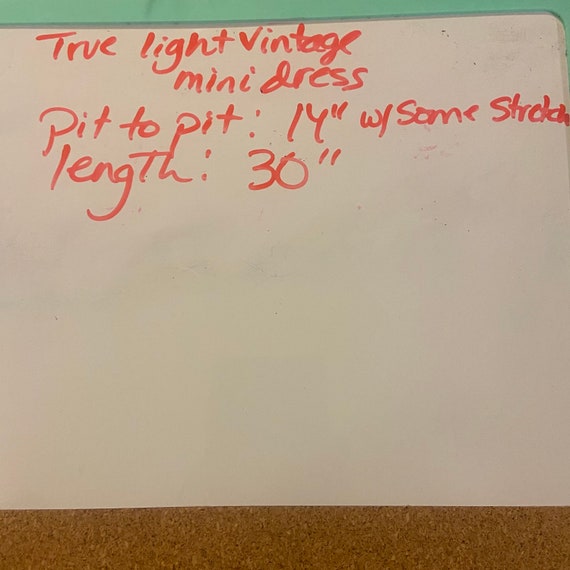 True light Vintage
mini dress
Pit to pit: 14" w/ Some Stretch
length: 30"